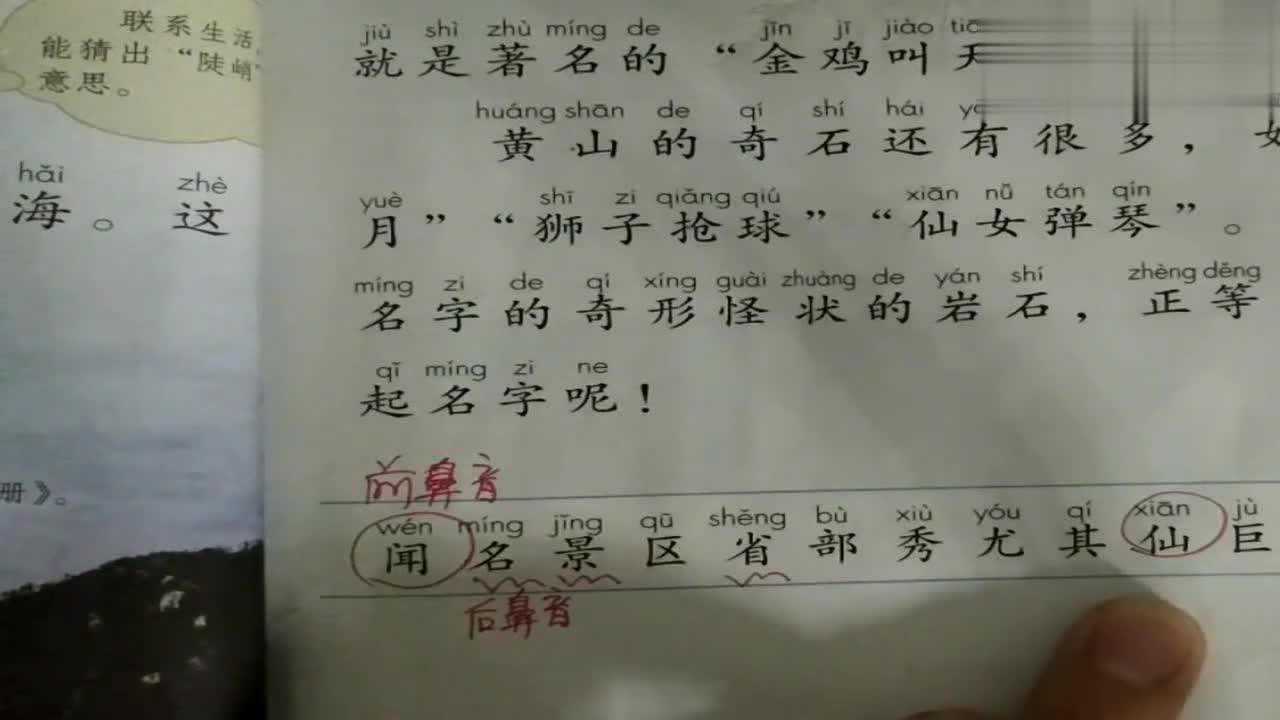 联系生活
能猜出“陡峭”
意思。
hǎi zhè
海。这
册》。
jiù shì zhù míng de jīn jī jiào
就是著名的“金鸡叫天
huáng shān de qí shí hái
黄山的奇石还有很多，
yuè shī zi qiǎng qiú xiān nǚ tán qín
月”“狮子抢球”“仙女弹琴”。
míng zi de qí xíng guài zhuàng de yán shí zhèng děng
名字的奇形怪状的岩石，正等
qǐ míng zi ne
起名字呢！
前鼻音
wén míng jǐng qū shěng bù xiù yóu qí xiān jù
闻名景区省部秀尤其仙巨
后鼻音